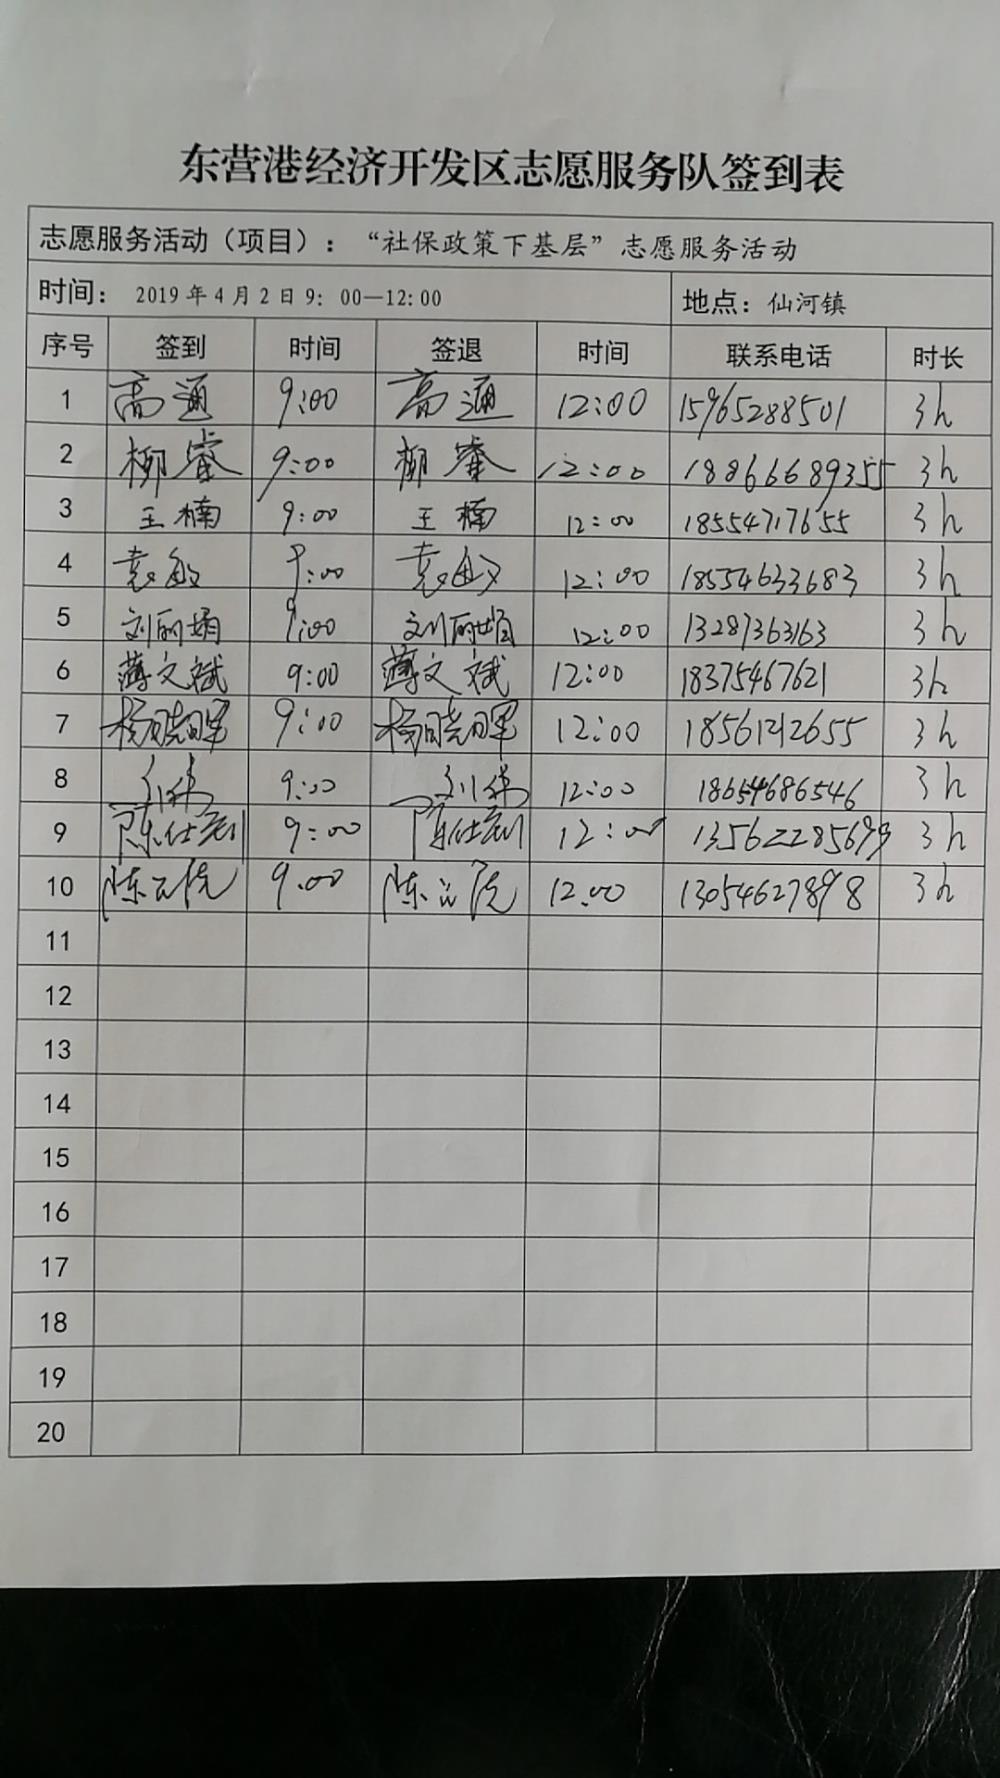 东营港经济开发区志愿服务队签到表
志愿服务活动（项目）：“社保政策下基层”志愿服务活动
时间： 2019年4月2日9：00—12:00 地点：仙河镇
序号 签到 时间 签退 时间 联系电话 时长
1 高通 9:00 高通 12:00 15965288501 3h
2 柳睿 9:00 柳睿 12:00 18866689355 3h
3 王楠 9:00 王楠 12:00 18554717655 3h
4 袁敏 9:00 袁敏 12:00 18554633683 3h
5 刘丽娟 9:00 刘丽娟 12:00 13287363163 3h
6 薄文斌 9:00 薄文斌 12:00 18375467621 3h
7 杨晓晖 9:00 杨晓晖 12:00 3h
8 刘伟 9:00 刘伟 12:00 18654686546 3h
9 9:00 12:00 3h
10 9.00 12.00 13054627898 3h
11
12
13
14
15
16
17
18
19
20